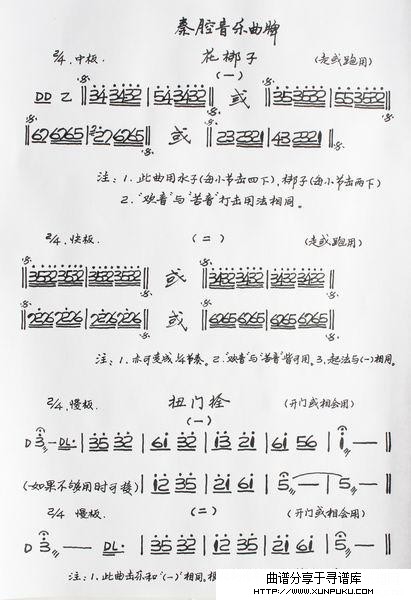 秦腔音乐曲牌
2/4.中板. 花梆子 (走或跑用)
(一)
DD 乙 34 3432 | 54 3432 或 35 3532 | 55 3532
62 6265 | 22 6265 或 23 2321 | 43 2321
注:1.此曲用水子(每小节击四下),梆子(每小节击两下)
2."欢音"与"苦音"打击用法相同。
2/4.快板. (二) (走或跑用)
3532 3532 | 3532 3532 或 3432 3432 | 3432 3432
2226 2226 | 2226 2226 或 6265 6265 | 6265 6265
注:1.亦可变成1/4节奏。2."欢音"与"苦音"皆可用。3.起法与(一)相同。
2/4.慢板. 扭门拴 (开门或相会用)
(一)
D 3 — DL· | 35 32 | 61 32 | 13 21 | 61 56 | 1 —
(如果不够用时可接) | 12 35 | 21 61 | 5 — | 5 —
2/4 慢板 (二) (开门或相会用)
D 3 — DL· | 35 32 | 12 35 | 21 61 | 5 —
注:1.此曲击乐和"(一)"相同。
曲谱分享于寻谱库
HTTP://WWW.XUNPUKU.COM